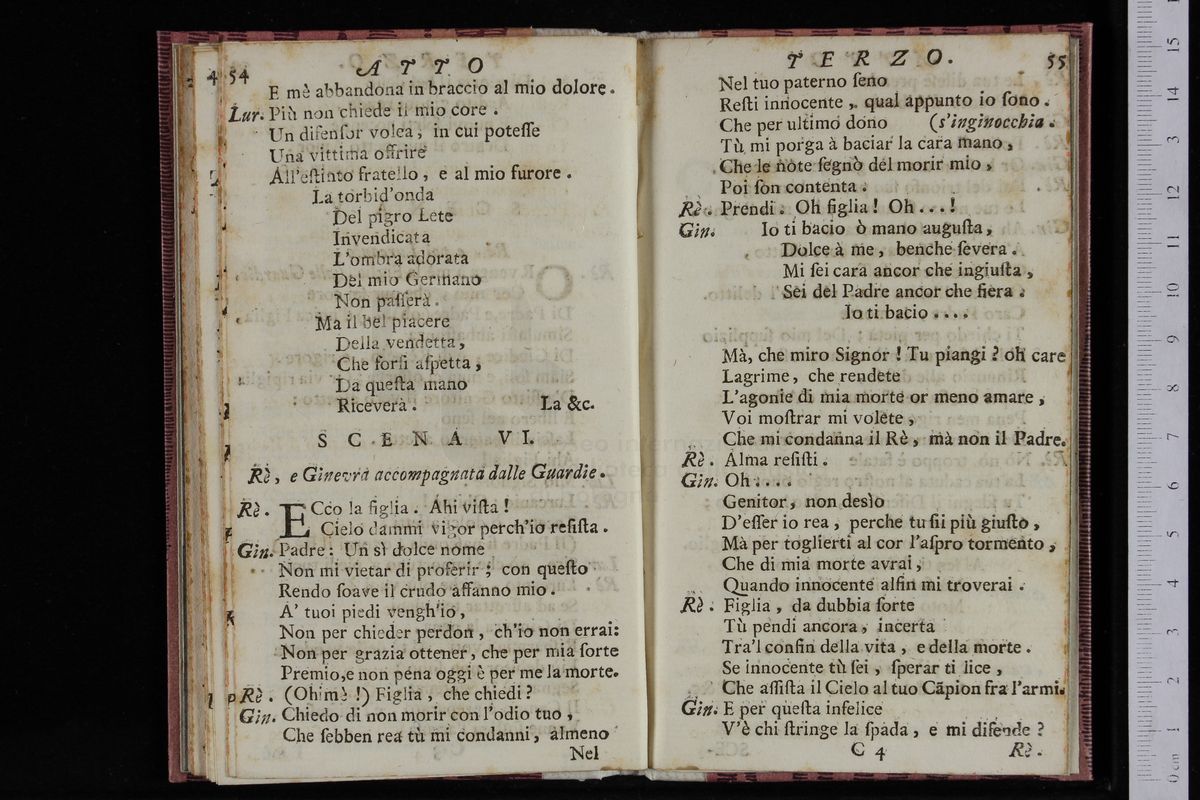 54 ATTO
E mè abbandona in braccio al mio dolore.
Lur. Più non chiede il mio core.
Un difenſor volea, in cui poteſſe
Una vittima offrire
All'eſtinto fratello, e al mio furore.
La torbid'onda
Del pigro Lete
Invendicata
L'ombra adorata
Del mio Germano
Non paſſerà.
Ma il bel piacere
Della vendetta,
Che forſi aſpetta,
Da queſta mano
Riceverà. La &c.
SCENA VI.
Rè, e Ginevra accompagnata dalle Guardie.
Rè. ECco la figlia. Ahi viſta!
Cielo dammi vigor perch'io reſiſta.
Gin. Padre: Un sì dolce nome
Non mi vietar di proferir; con queſto
Rendo ſoave il crudo affanno mio.
A' tuoi piedi vengh'io,
Non per chieder perdon, ch'io non errai:
Non per grazia ottener, che per mia ſorte
Premio, e non pena oggi è per me la morte.
Rè. (Ohimè!) Figlia, che chiedi?
Gin. Chiedo di non morir con l'odio tuo,
Che ſebben rea tù mi condanni, almeno
Nel
TERZO. 55
Nel tuo paterno ſeno
Reſti innocente, qual appunto io ſono.
Che per ultimo dono (s'inginocchia.
Tù mi porga à baciar la cara mano,
Che le note ſegnò del morir mio,
Poi ſon contenta.
Rè. Prendi. Oh figlia! Oh...!
Gin. Io ti bacio ò mano auguſta,
Dolce à me, benche ſevera.
Mi ſei cara ancor che ingiuſta,
Sei del Padre ancor che fiera.
Io ti bacio....
Mà, che miro Signor! Tu piangi? oh care
Lagrime, che rendete
L'agonie di mia morte or meno amare,
Voi moſtrar mi volete,
Che mi condanna il Rè, mà non il Padre.
Rè. Alma reſiſti.
Gin. Oh....
Genitor, non desìo
D'eſſer io rea, perche tu ſii più giuſto,
Mà per toglierti al cor l'aſpro tormento,
Che di mia morte avrai,
Quando innocente alfin mi troverai.
Rè. Figlia, da dubbia ſorte
Tù pendi ancora, incerta
Tra'l confin della vita, e della morte.
Se innocente tù ſei, ſperar ti lice,
Che aſſiſta il Cielo al tuo Cāpion fra l'armi.
Gin. E per queſta infelice
V'è chi ſtringe la ſpada, e mi difende?
C 4 Rè.